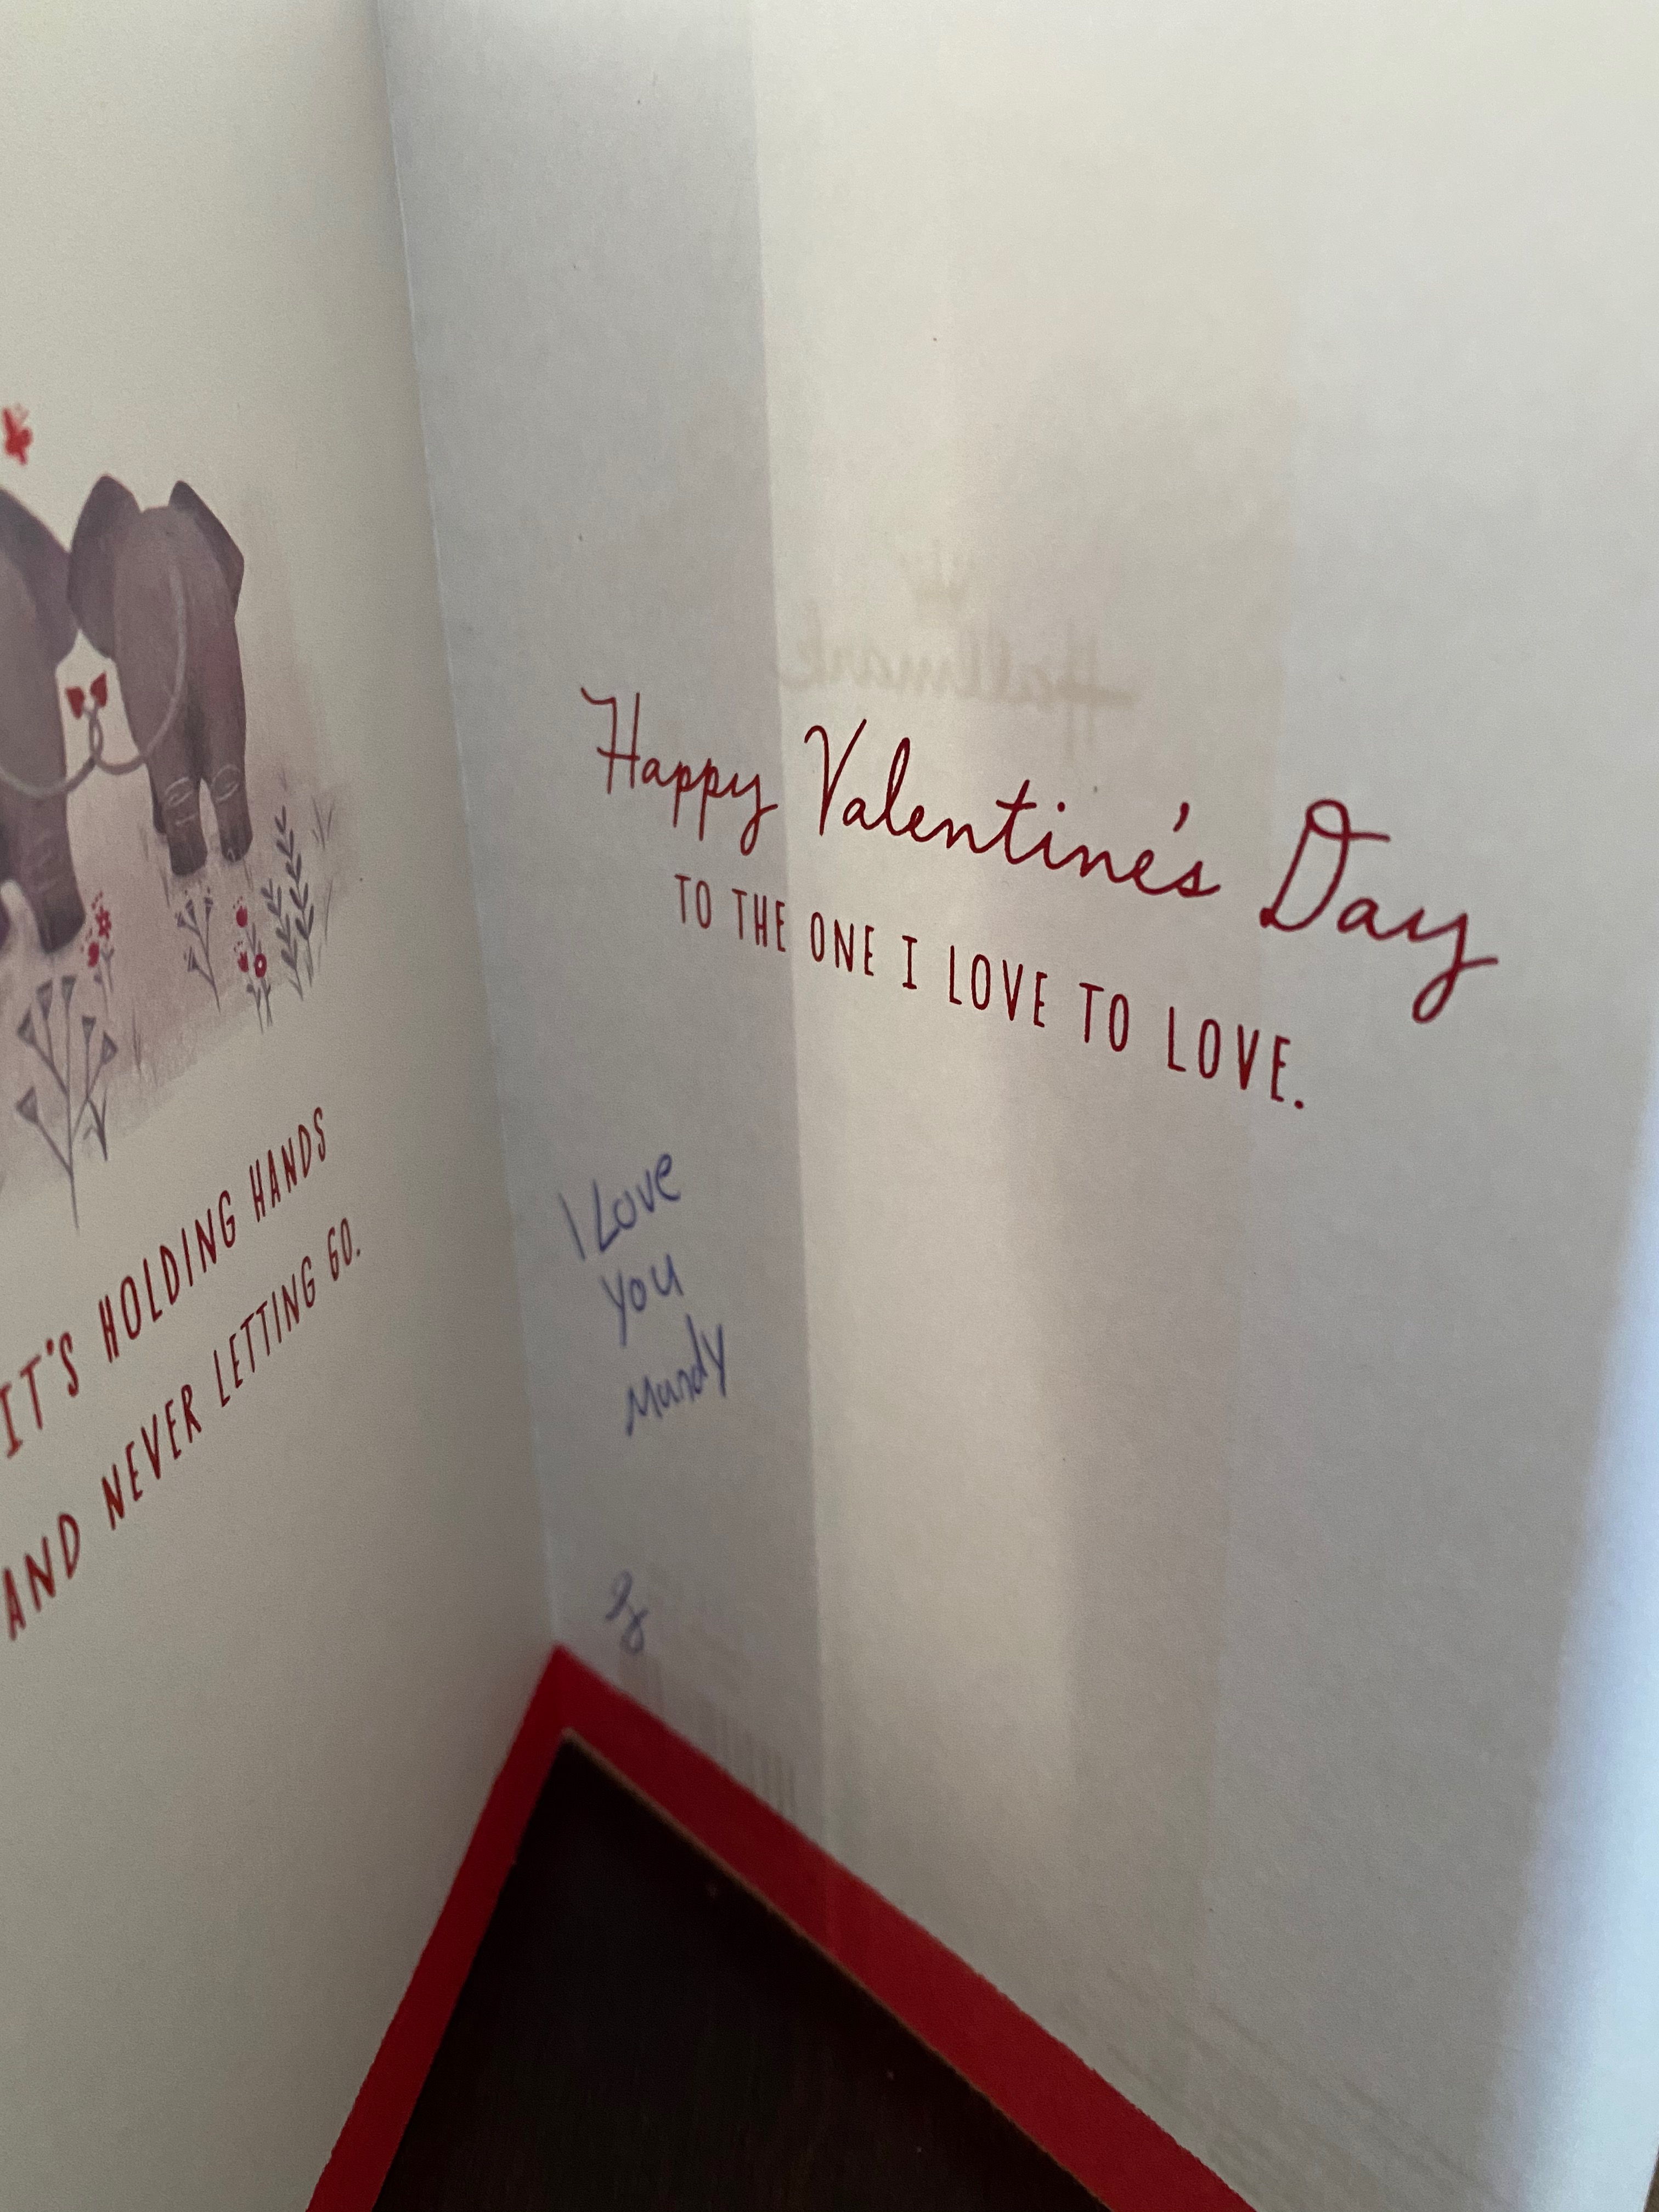 IT'S HOLDING HANDS
AND NEVER LETTING GO.
Hallmark
Happy Valentine's Day
TO THE ONE I LOVE TO LOVE.
I Love
you
Mandy